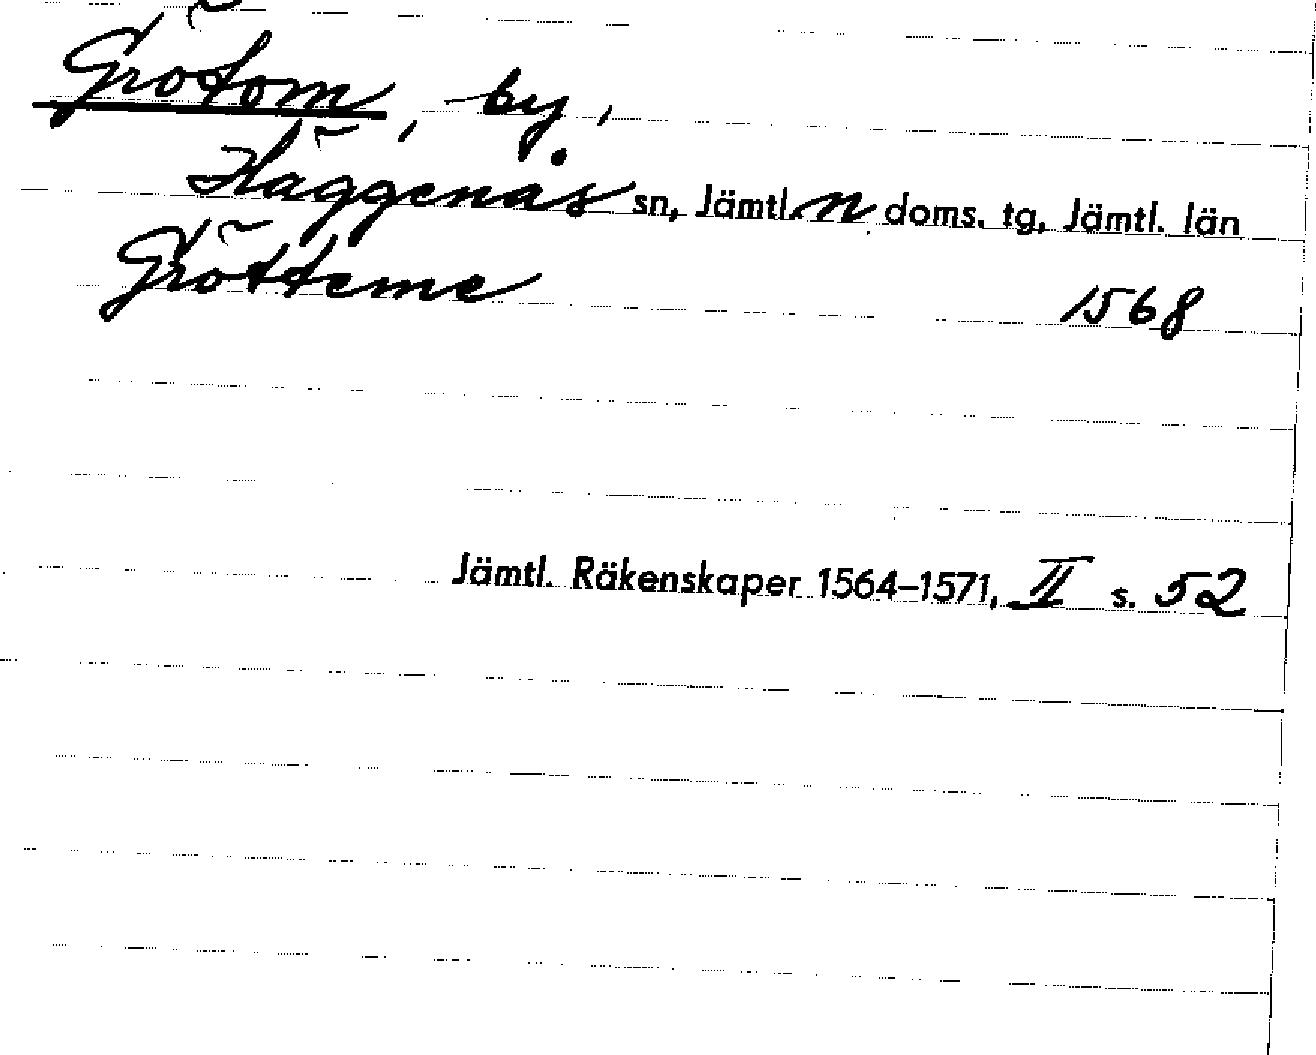 Grötom, by,
Häggenås sn, Jämtl. n doms. tg, Jämtl. län
Grötteme 1568
Jämtl. Räkenskaper 1564–1571, II s. 52